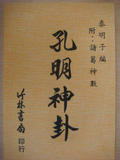 泰明子編
附:諸葛神數
孔明神卦
竹林書局
印行